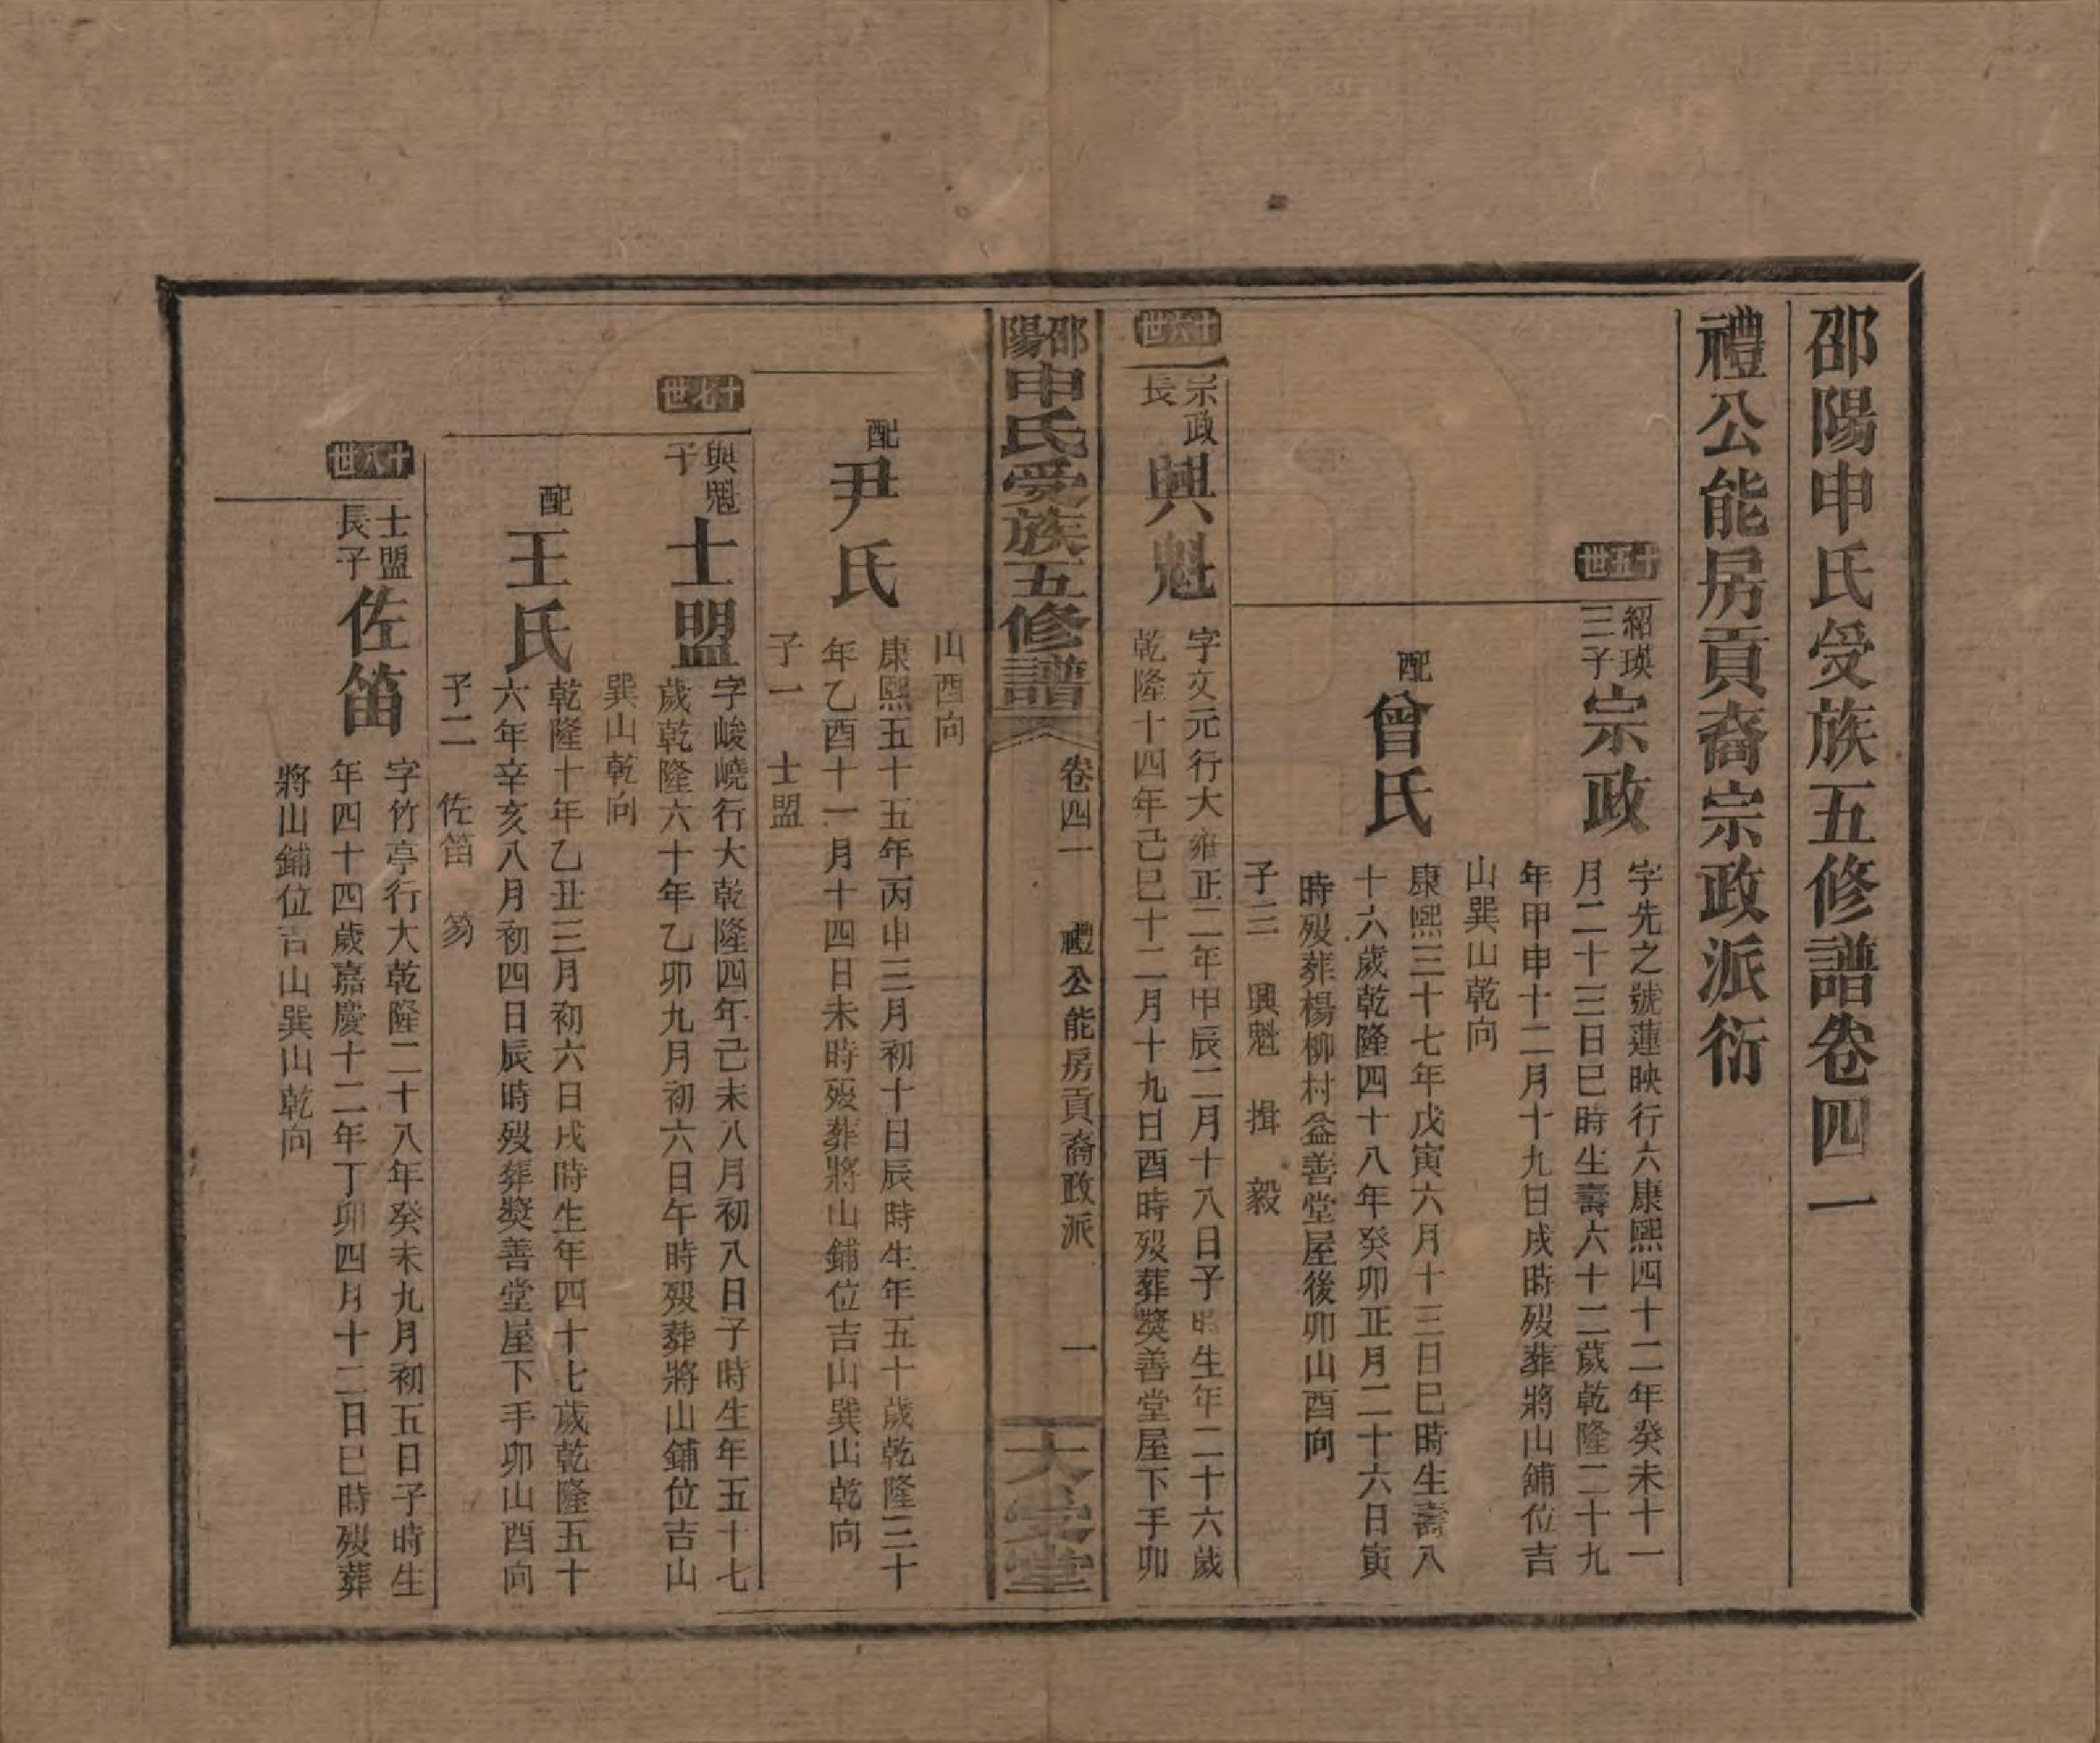 邵陽申氏受族五修譜卷四一
禮公能房貢裔宗政派衍
十五世
紹瑛
三子
宗政
字先之號蓮映行六康熙四十二年癸未十一
月二十三日巳時生壽六十二歲乾隆二十九
年甲申十二月十九日戌時歿葬將山鋪位吉
山巽山乾向
配
曾氏
康熙三十七年戊寅六月十三日巳時生壽八
十六歲乾隆四十八年癸卯正月二十六日寅
時歿葬楊柳村益善堂屋後卯山酉向
子三 興魁 揖 毅
十六世
宗政
長
興魁
字文元行大雍正二年甲辰二月十八日子時生年二十六歲
乾隆十四年己巳十二月十九日酉時歿葬獎善堂屋下手卯
邵陽申氏受族五修譜
卷四一
禮公能房貢裔政派
一
大受堂
山酉向
配
尹氏
康熙五十五年丙申三月初十日辰時生年五十歲乾隆三十
年乙酉十一月十四日未時歿葬將山鋪位吉山巽山乾向
子一 士盟
十七世
興魁
子
士盟
字峻嶢行大乾隆四年己未八月初八日子時生年五十七
歲乾隆六十年乙卯九月初六日午時歿葬將山鋪位吉山
巽山乾向
配
王氏
乾隆十年乙丑三月初六日戌時生年四十七歲乾隆五十
六年辛亥八月初四日辰時歿葬獎善堂屋下手卯山酉向
子二 佐笛 笏
十八世
士盟
長子
佐笛
字竹亭行大乾隆二十八年癸未九月初五日子時生
年四十四歲嘉慶十二年丁卯四月十二日巳時歿葬
將山鋪位吉山巽山乾向